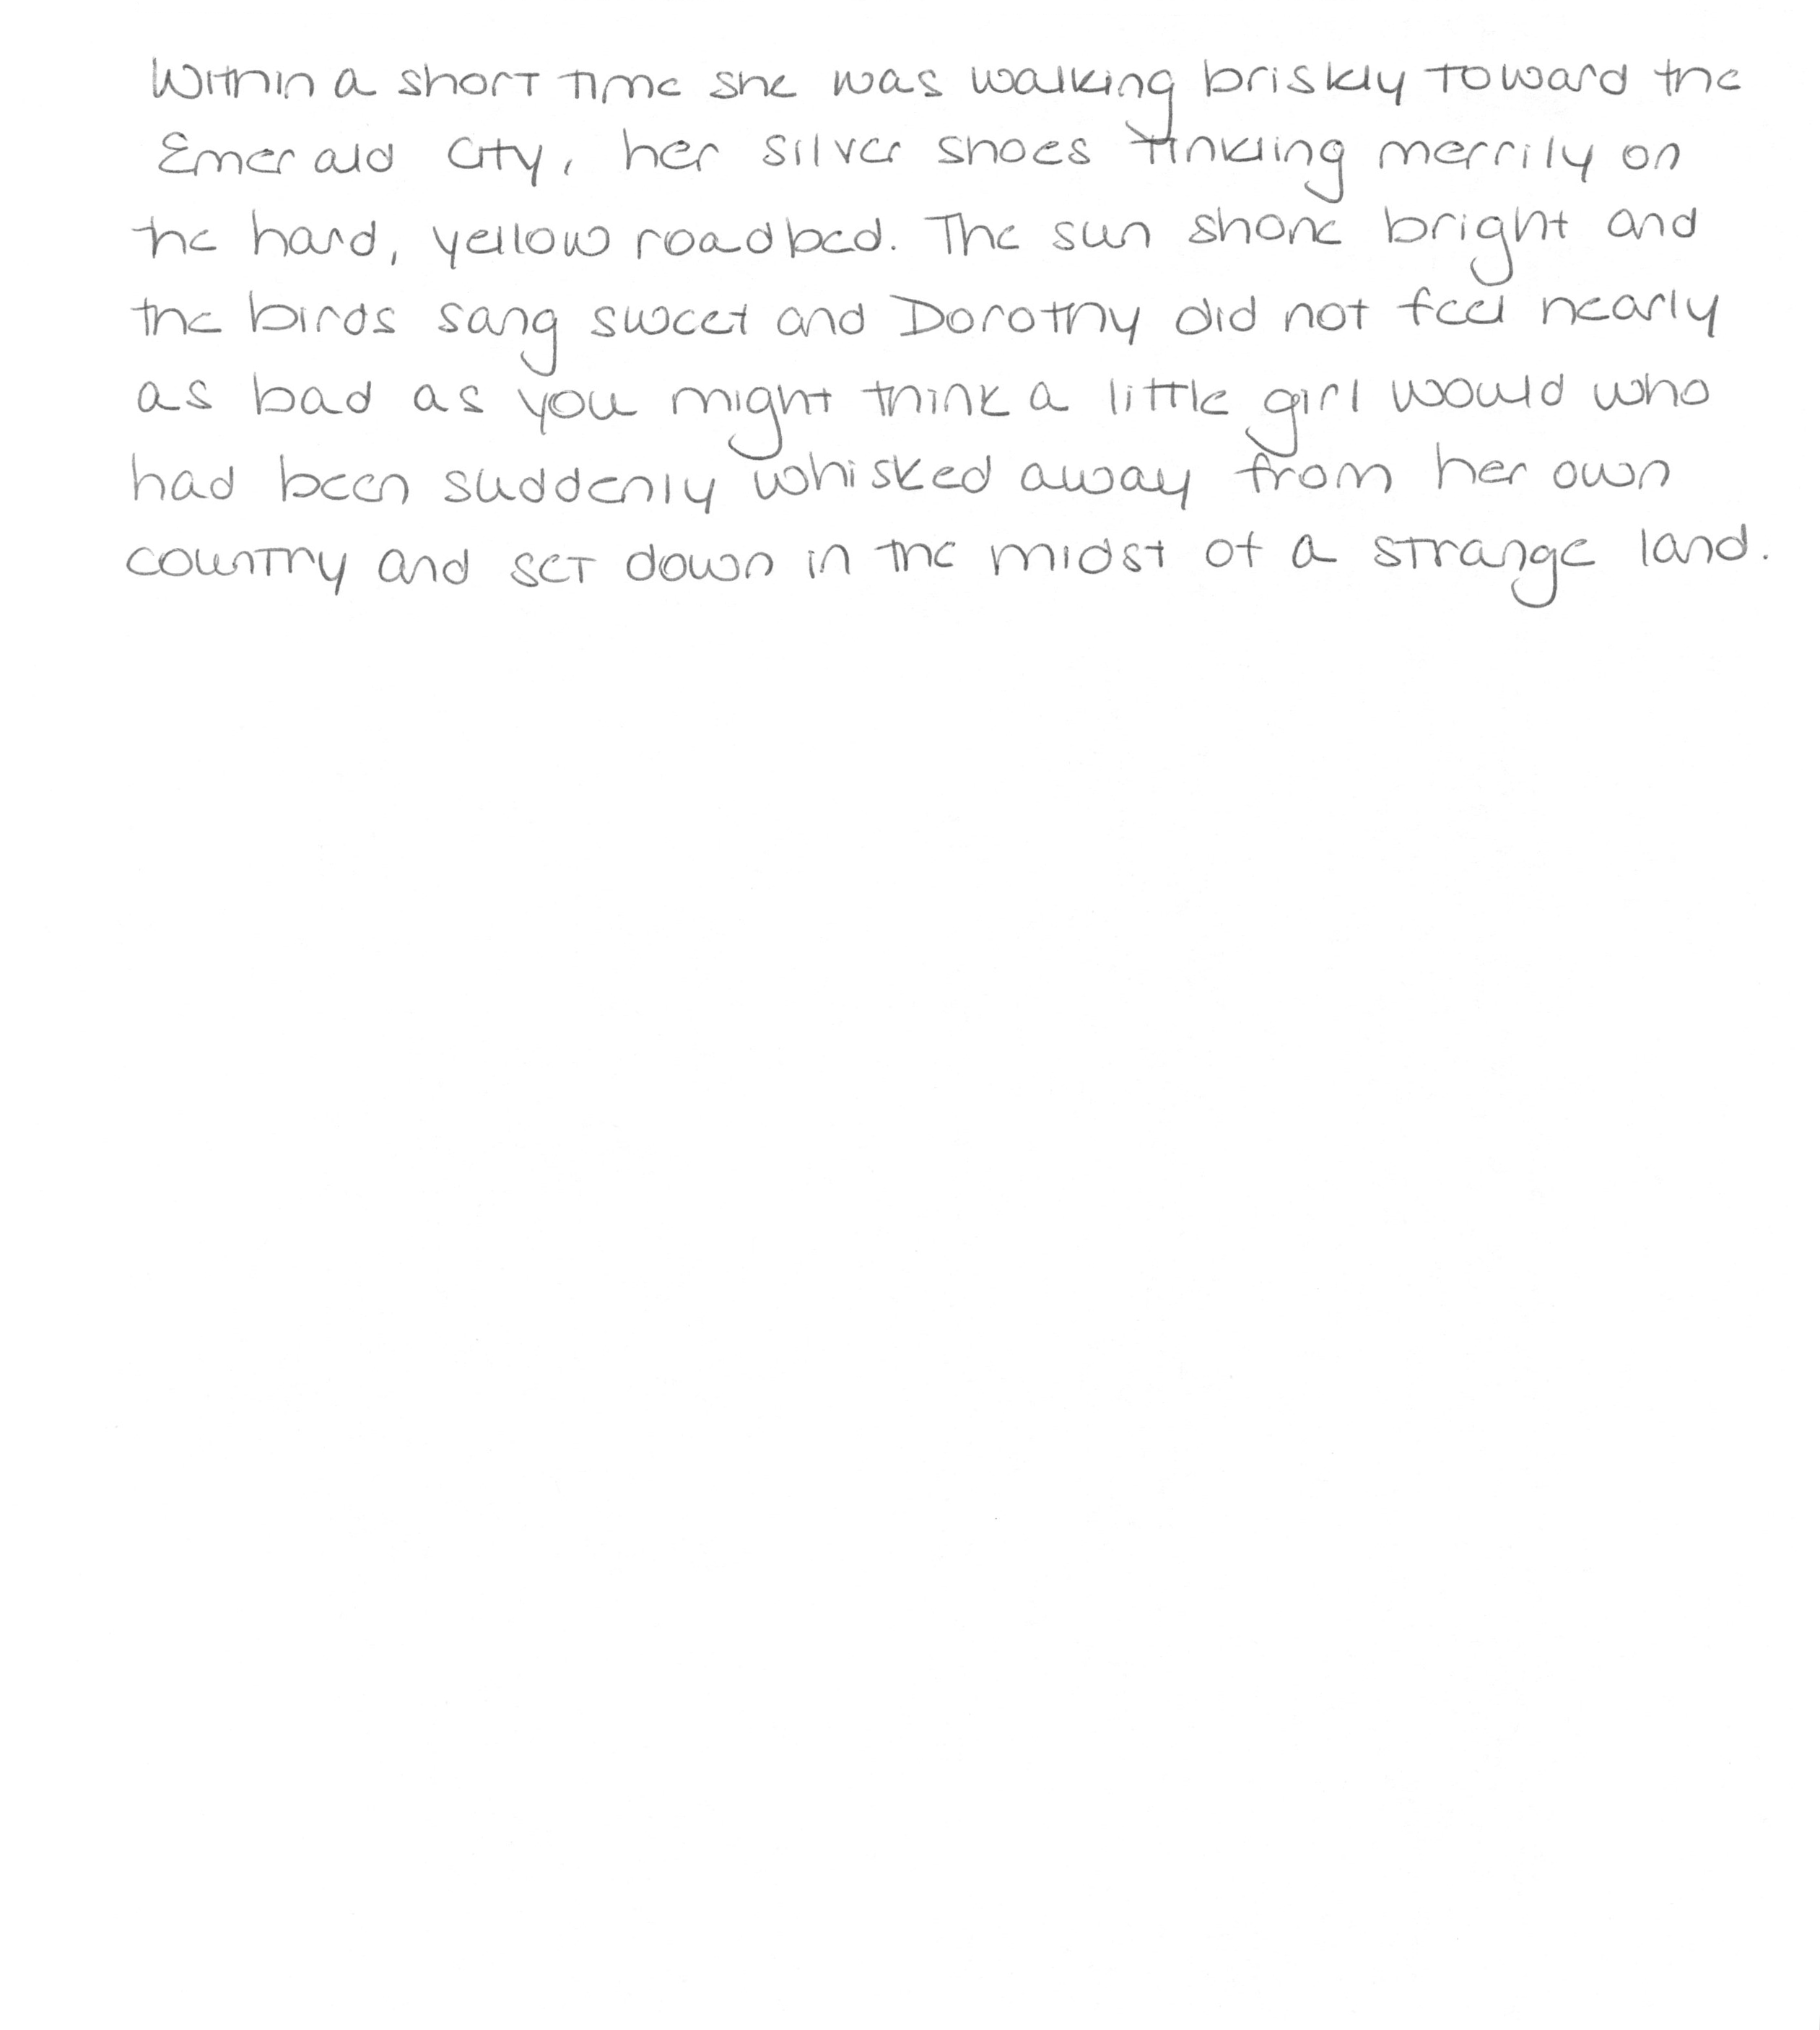 Within a short time she was walking briskly toward the
Emerald City, her silver shoes tinkling merrily on
the hard, yellow roadbed. The sun shone bright and
the birds sang sweet and Dorothy did not feel nearly
as bad as you might think a little girl would who
had been suddenly whisked away from her own
country and set down in the midst of a strange land.